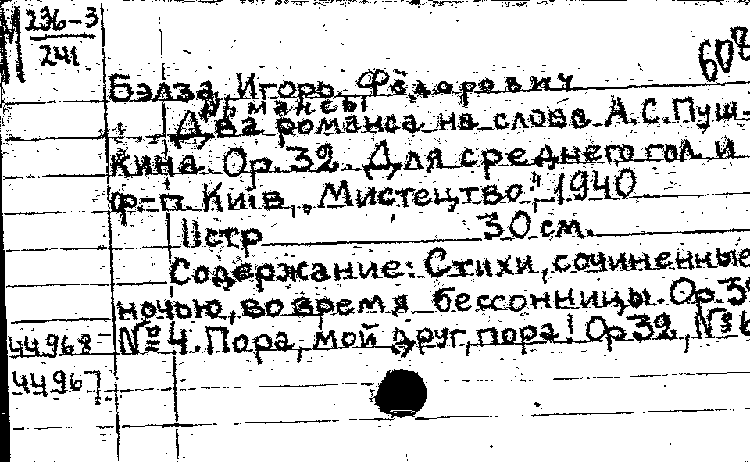 М 236-3
241
607
Бэлза, Игорь Фёдорович
Романсы
Два романса на слова А.С.Пуш-
кина. Ор. 32. Для среднего гол. и
ф-п. Київ, "Мистецтво", 1940
11стр 30 см.
Содержание: Стихи, сочиненные
ночью, во время бессонницы. Ор.
№4. Пора, мой друг, пора! Ор 32, №
44968
44967